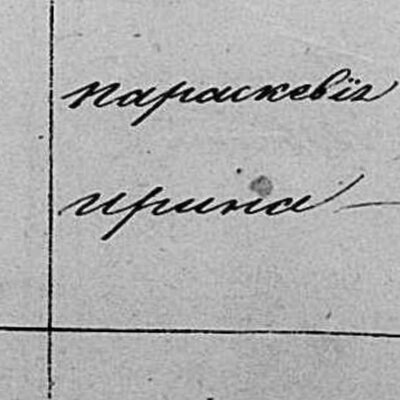 параскевіа
ирина